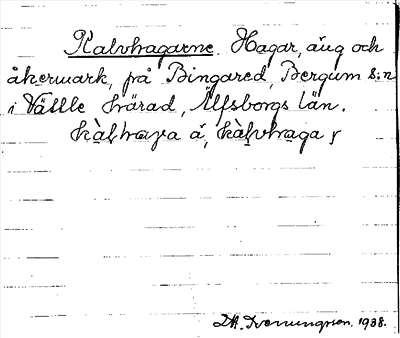 Kalvhagarne. Hagar, äng och
åkermark, på Bingared, Bergum s:n
i Vättle härad, Älfsborgs län.
1938.